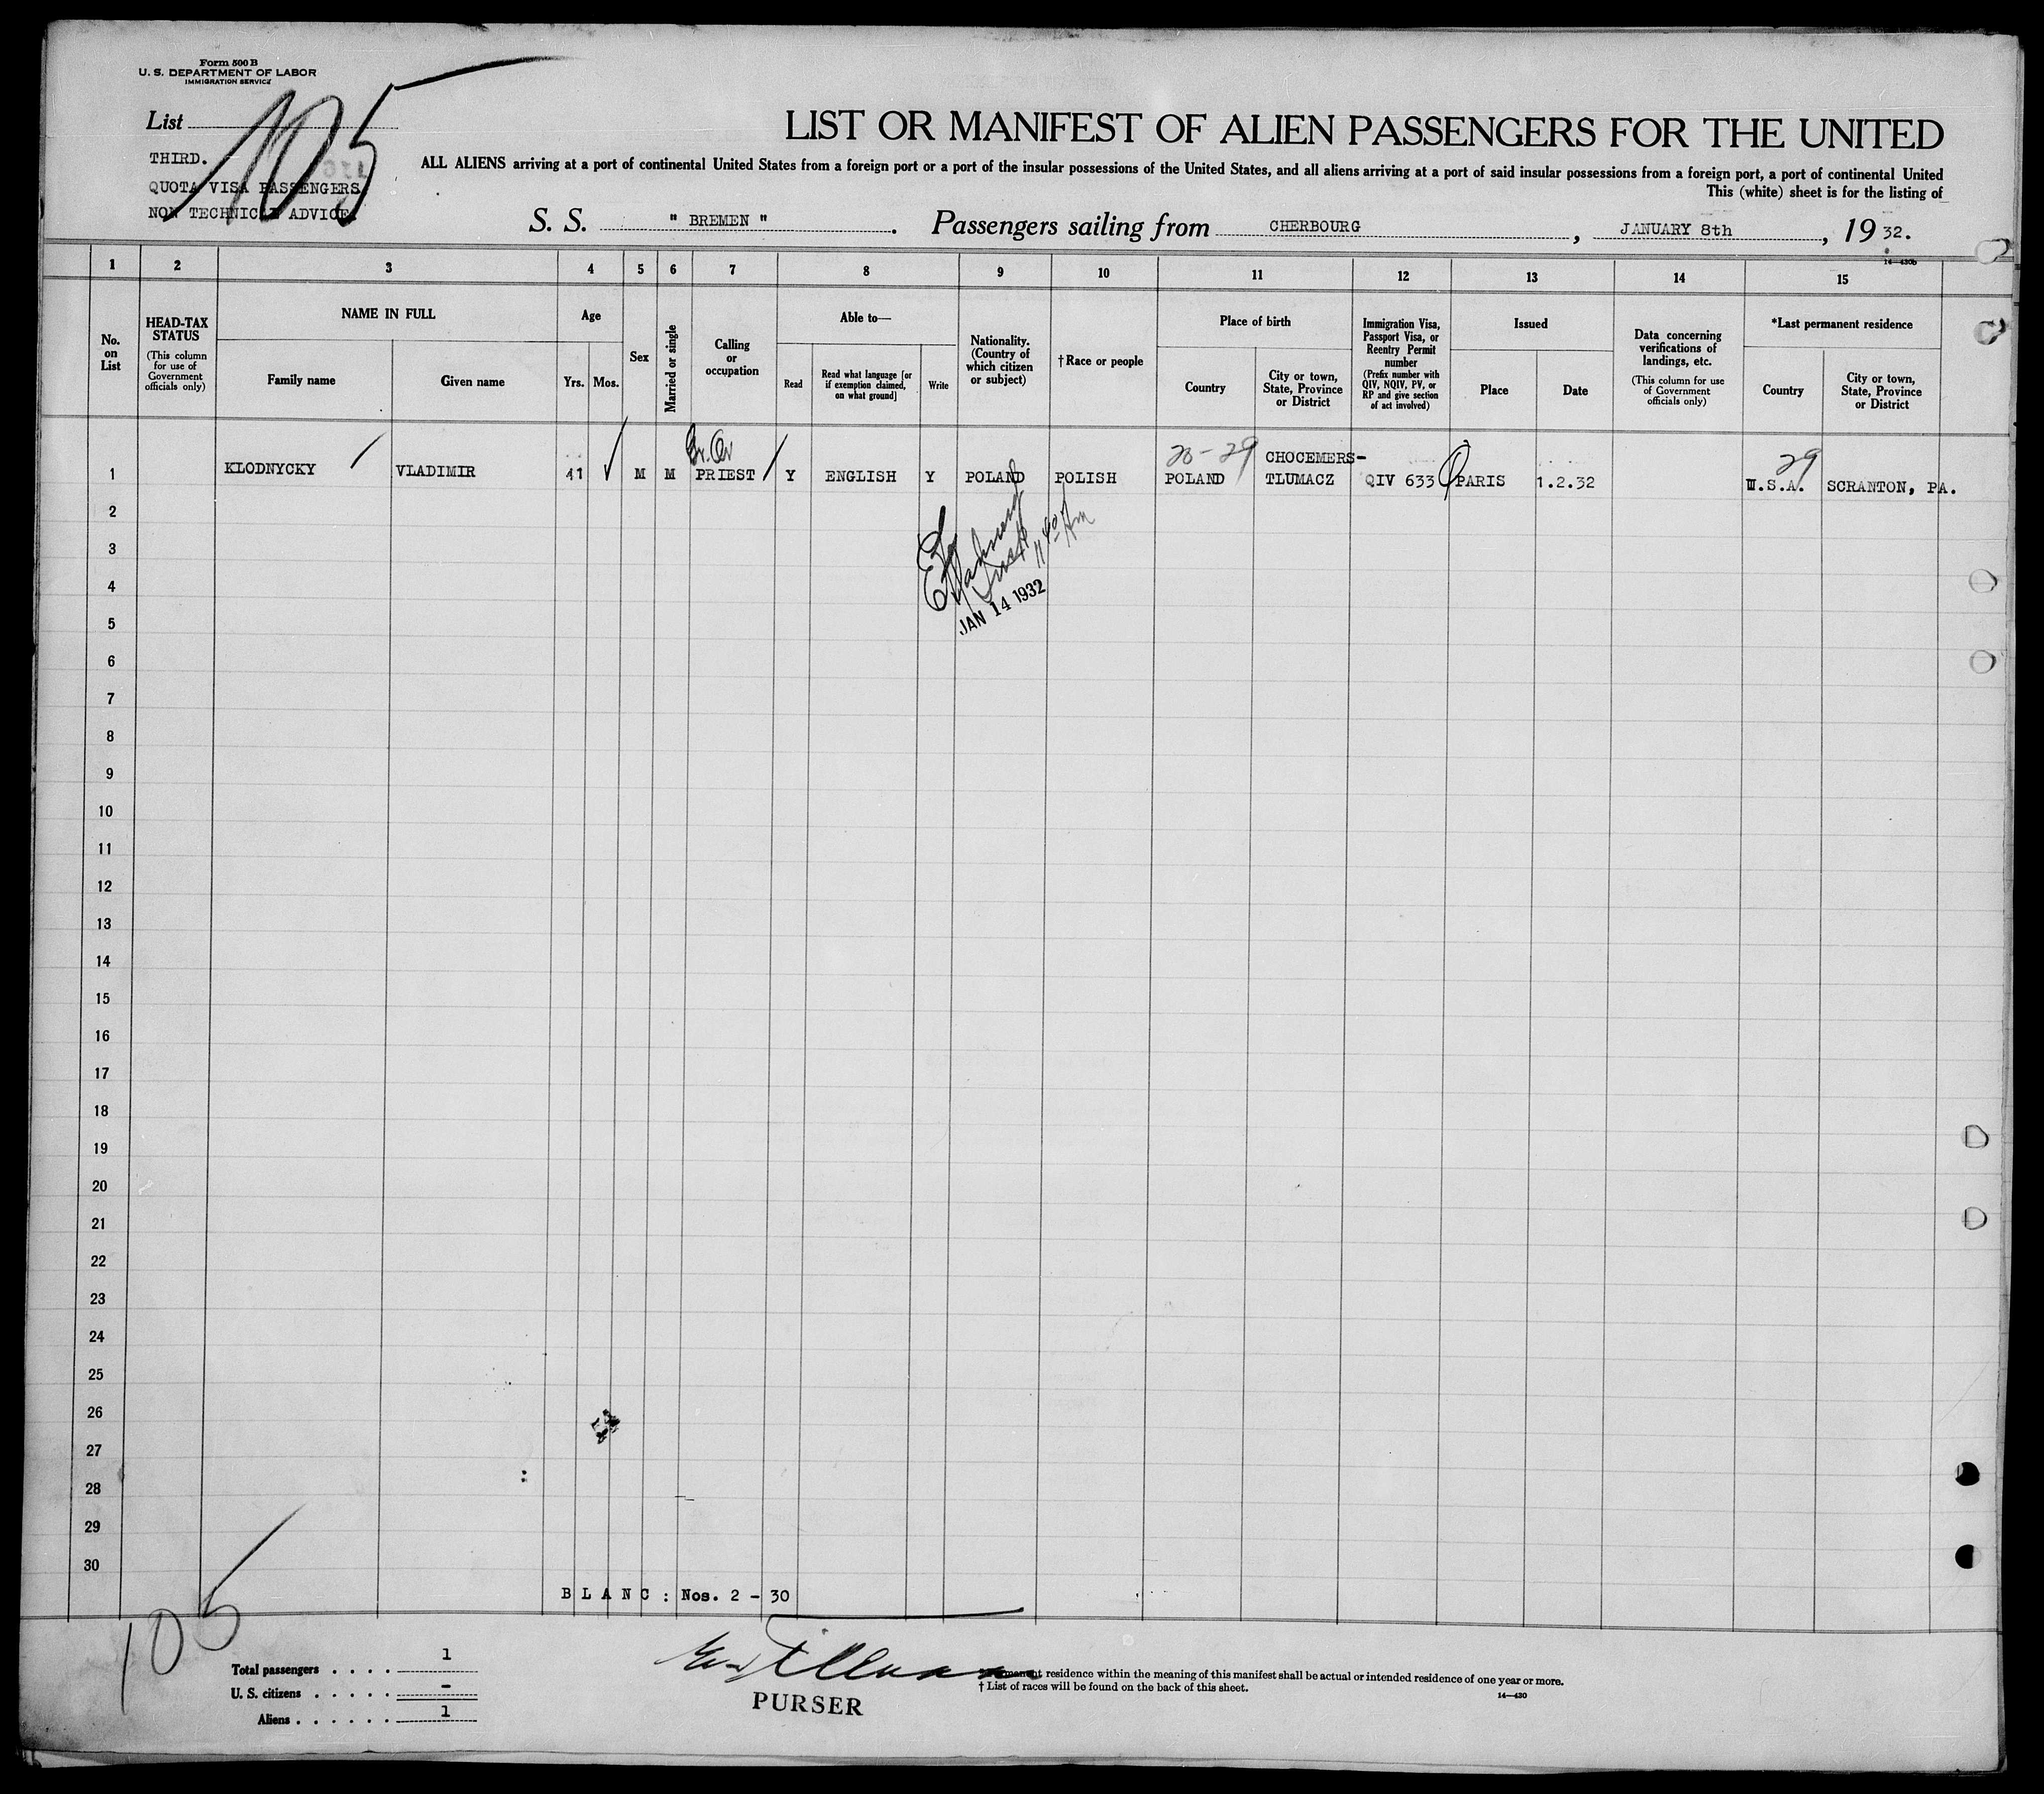 Form 500 B
U. S. DEPARTMENT OF LABOR
IMMIGRATION SERVICE
List 105
THIRD.
QUOTA VISA PASSENGERS
NON TECHNICAL ADVICE.
LIST OR MANIFEST OF ALIEN PASSENGERS FOR THE UNITED
ALL ALIENS arriving at a port of continental United States from a foreign port or a port of the insular possessions of the United States, and all aliens arriving at a port of said insular possessions from a foreign port, a port of continental United
This (white) sheet is for the listing of
S. S. " BREMEN ". Passengers sailing from CHERBOURG, JANUARY 8th, 19 32.
14—430b
1 2 3 4 5 6 7 8 9 10 11 12 13 14 15
No. on List
HEAD-TAX STATUS
(This column for use of Government officials only)
NAME IN FULL
Family name
Given name
Age
Yrs. Mos.
Sex
Married or single
Calling or occupation
Able to—
Read
Read what language [or if exemption claimed, on what ground]
Write
Nationality. (Country of which citizen or subject)
†Race or people
Place of birth
Country
City or town, State, Province or District
Immigration Visa, Passport Visa, or Reentry Permit number
(Prefix number with QIV, NQIV, PV, or RP and give section of act involved)
Issued
Place
Date
Data concerning verifications of landings, etc.
(This column for use of Government officials only)
*Last permanent residence
Country
City or town, State, Province or District
29
29
CHOCEMERS-
1 KLODNYCKY VLADIMIR 41 M M PRIEST Y ENGLISH Y POLAND POLISH POLAND TLUMACZ QIV 633 PARIS 1.2.32 U.S.A. SCRANTON, PA.
2
3
4
JAN 14 1932
5
6
7
8
9
10
11
12
13
14
15
16
17
18
19
20
21
22
23
24
25
26
27
28
29
30
BLANC: Nos. 2 - 30
105
Total passengers . . . . 1
U. S. citizens . . . . . -
Aliens . . . . . . 1
PURSER
residence within the meaning of this manifest shall be actual or intended residence of one year or more.
† List of races will be found on the back of this sheet.
14—430